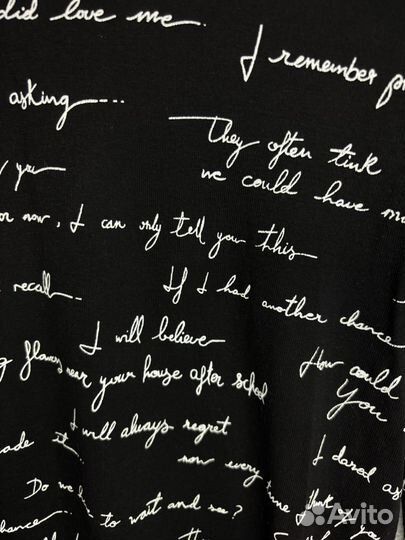 did love me.
I remember
asking....
They often tink
we could have
you
now, I can only tell you this
recall.
If I had another chance
I will believe
How could
near your house after school
You
I will always regret
now every time I think
I dared as
Do we to wait and see?
you
chance
Avito